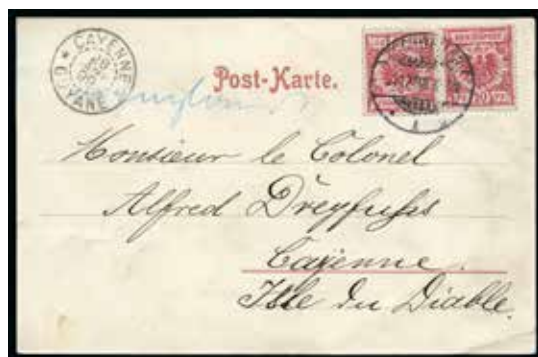 CAYENNE
GUYANE
Post-Karte.
REICHSPOST
Monsieur le Colonel
Alfred Dreyfuhs
Cayenne.
Isle du Diable.